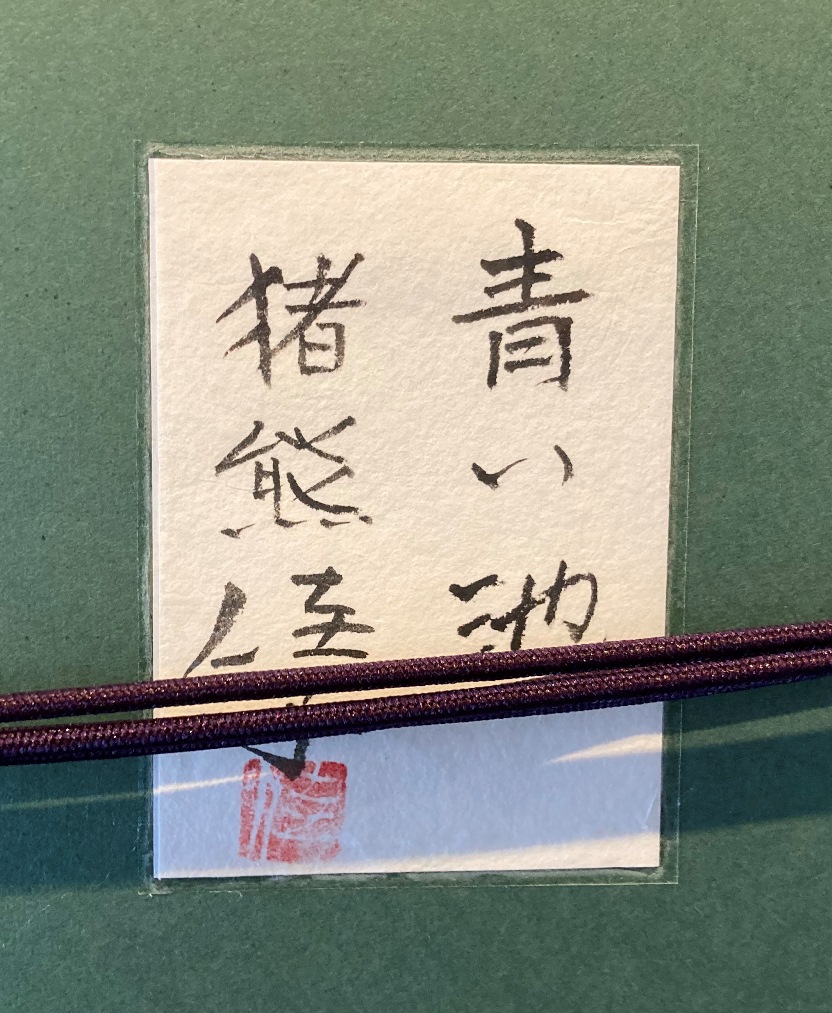 青い池
猪熊佳子